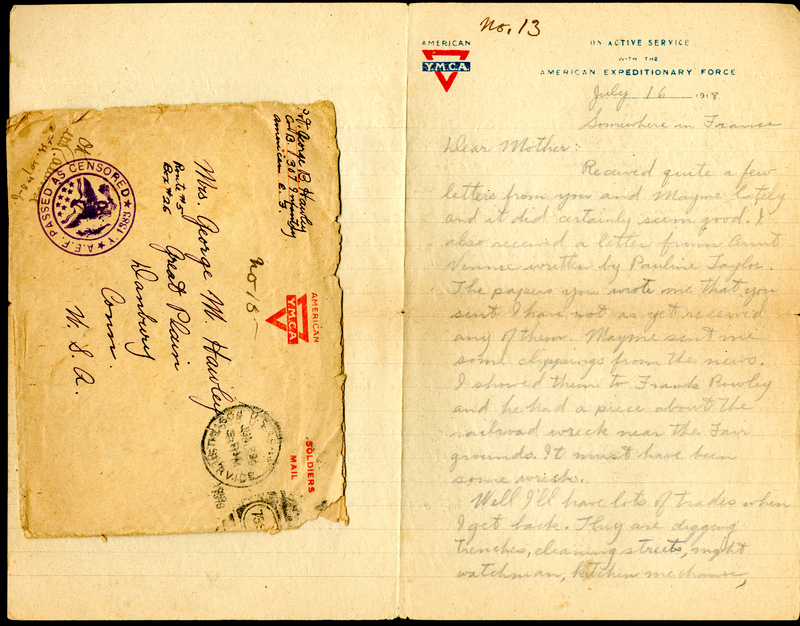 No. 13
AMERICAN
Y.M.C.A.
ON ACTIVE SERVICE
WITH THE
AMERICAN EXPEDITIONARY FORCE
July 16 1918
Somewhere in France
Dear Mother:
Received quite a few
letters from you and Mayme lately
and it did certainly seem good. I
also received a letter from Aunt
Vinnie written by Pauline Taylor.
The papers you wrote me that you
sent I have not as yet received
any of them. Mayme sent me
some clippings from the news.
I showed them to Frank Rowley
and he had a piece about the
railroad wreck near the Fair
grounds. It must have been
some wreck.
Well I'll have lots of trades when
I get back. They are digging
trenches, cleaning streets, night
watchman, kitchen mechanic,
George B. Hawley
Co B. 307 Infantry
American E. F.
PASSED AS CENSORED
A.E.F.
No 18
Mrs. George M. Hawley
Route #5 Great Plain
Box #26
Danbury
Conn.
U. S. A.
AMERICAN
Y.M.C.A.
SOLDIERS
MAIL